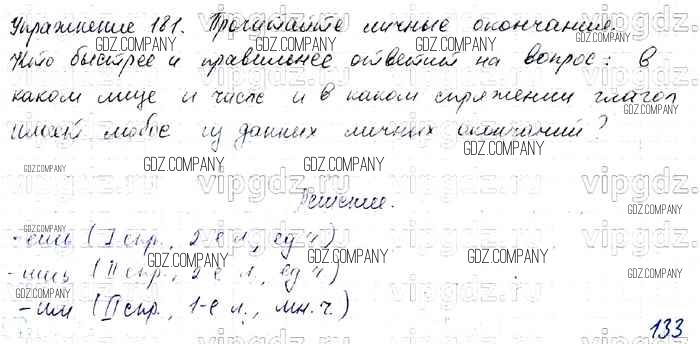 Упражнение 181. Прочитайте личные окончания.
Кто быстрее и правильнее ответит на вопрос: в
каком лице и числе и в каком спряжении глагол
имеет любое из данных личных окончаний?
Решение.
-ешь (I спр., 2-е л., ед.ч)
-ишь (II спр., 2-е л., ед.ч)
-им (II спр., 1-е л., мн.ч.)
133
GDZ.COMPANY
vipgdz.ru